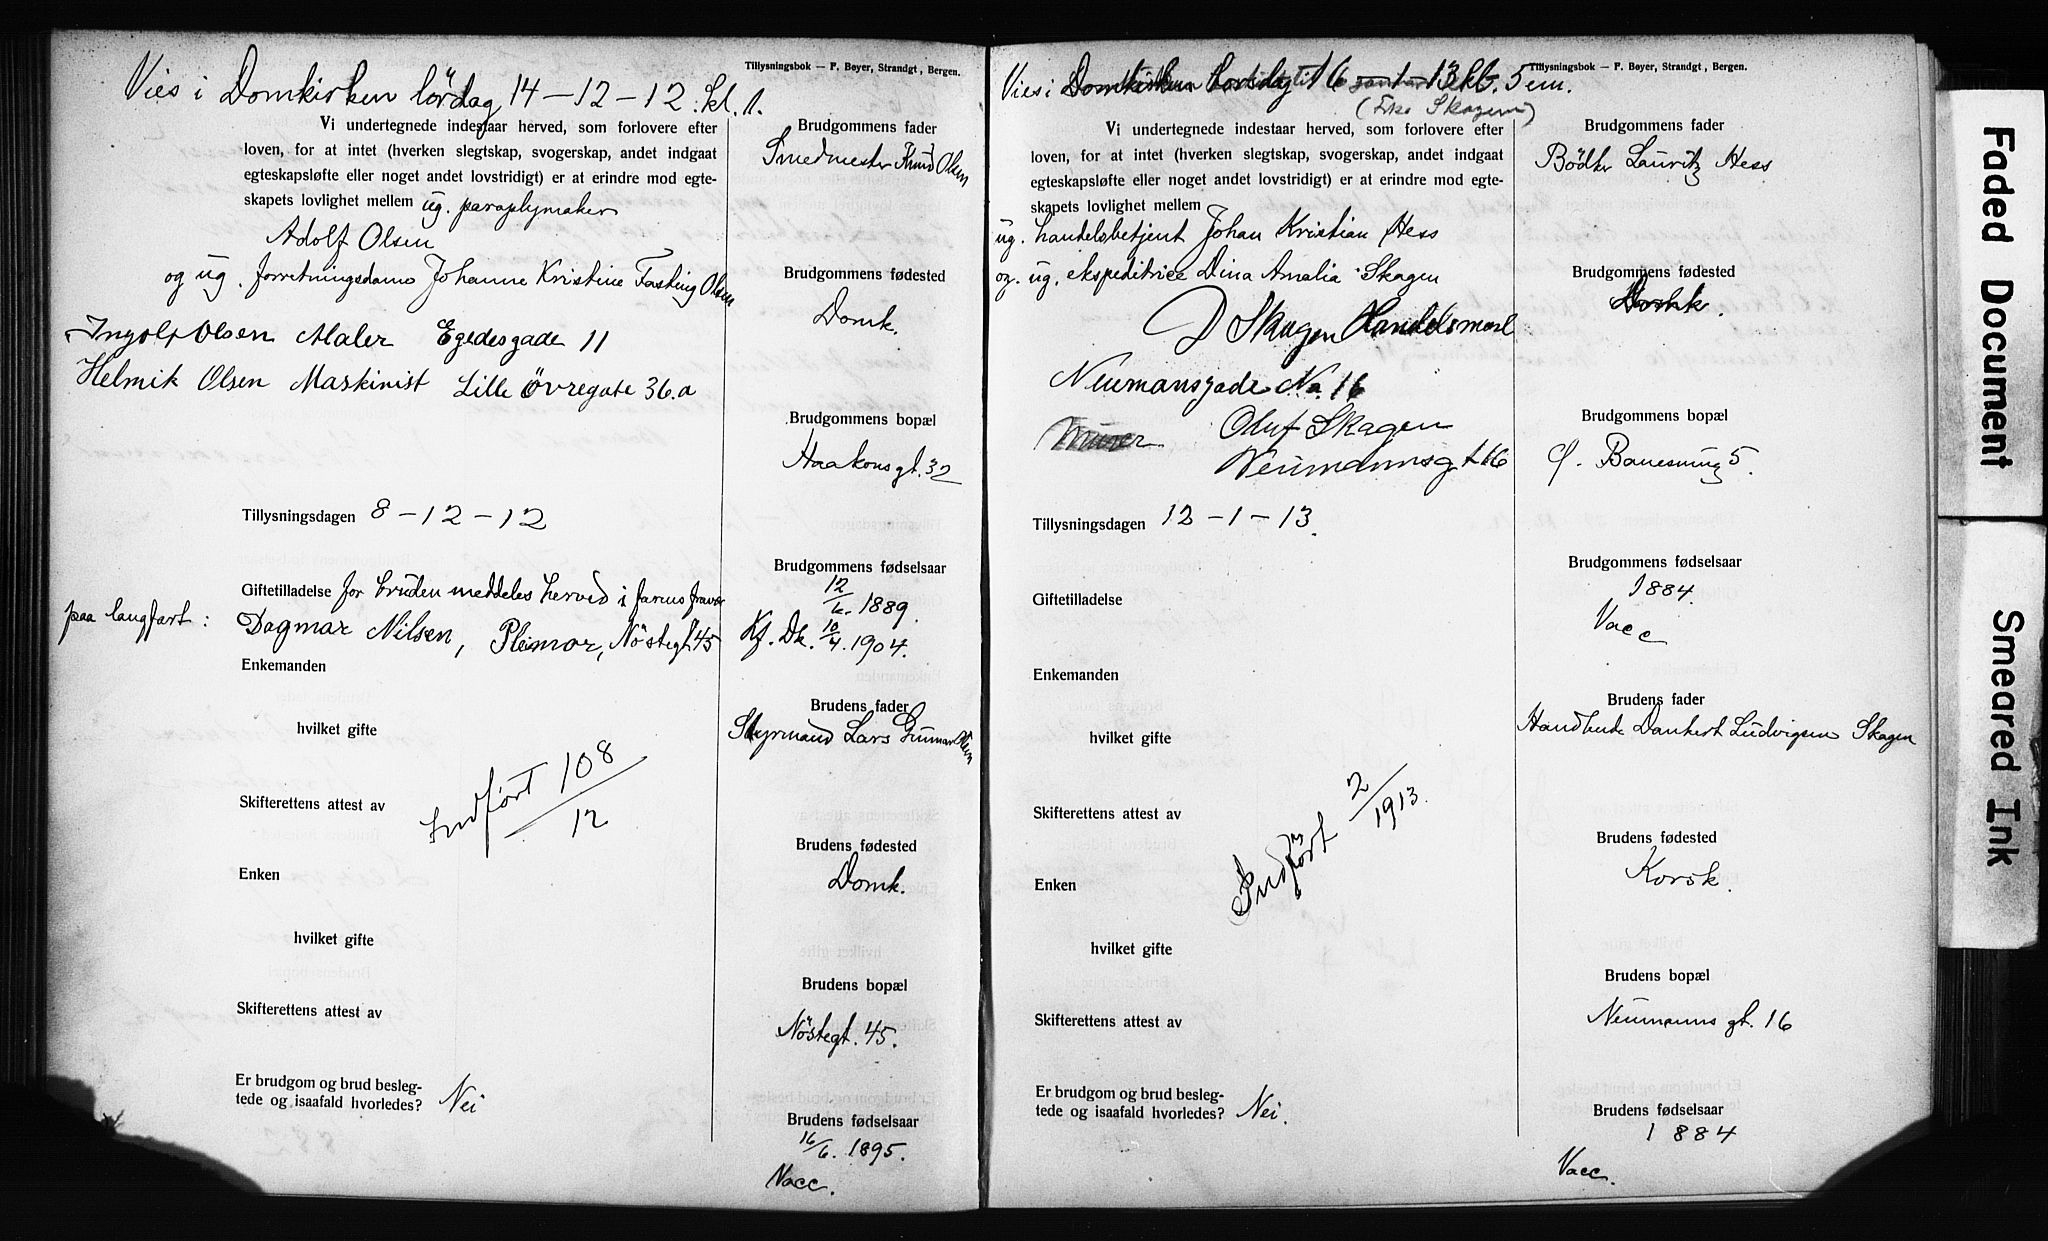 Tillysningsbok — F. Beyer, Strandgt, Bergen.
Vies i Domkirken lördag 14-12-12. kl. 1.
Vi undertegnede indestaar herved, som forlovere efter
loven, for at intet (hverken slegtskap, svogerskap, andet indgaat
egteskapsløfte eller noget andet lovstridigt) er at erindre mod egte-
skapets lovlighet mellem ug. paraplymaker
Adolf Olsen
og ug. forretningsdame Johanne Kristine Fasting Olsen
Ingolf Olsen Maler Egedesgade 11
Helmik Olsen Maskinist Lille övregate 36.a
Tillysningsdagen 8-12-12
Giftetilladelse for bruden meddeles herved i farens fravær
paa langfart:
Dagmar Nilsen, Pleimor, Nöstegt 45
Enkemanden
hvilket gifte
Indfört 108/12
Skifterettens attest av
Enken
hvilket gifte
Skifterettens attest av
Er brudgom og brud besleg-
tede og isaafald hvorledes? Nei
Brudgommens fader
Smedmester Knud Olsen
Brudgommens fødested
Domk.
Brudgommens bopæl
Haakonsgt. 32
Brudgommens fødselsaar
12/6. 1889.
Kf. Dk. 10/4. 1904.
Brudens fader
Styrmand Lars Gunnar Olsen
Brudens fødested
Domk.
Brudens bopæl
Nöstegt. 45.
Brudens fødselsaar
16/6. 1895.
Vacc.
Tillysningsbok — F. Beyer, Strandgt, Bergen.
Vies i Domkirken 16-1-13 kl. 5 em.
Skagen)
Vi undertegnede indestaar herved, som forlovere efter
loven, for at intet (hverken slegtskap, svogerskap, andet indgaat
egteskapsløfte eller noget andet lovstridigt) er at erindre mod egte-
skapets lovlighet mellem
ug. handelsbetjent Johan Kristian Hess
og. ug. ekspeditrice Dina Amalia Skagen
D Skagen Handelsmand
Neumansgade No. 16
Murer Oluf Skagen
Neumannsgt 16
Tillysningsdagen 12-1-13.
Giftetilladelse
Enkemanden
hvilket gifte
Indfört 2/1913.
Skifterettens attest av
Enken
hvilket gifte
Skifterettens attest av
Er brudgom og brud besleg-
tede og isaafald hvorledes? Nei.
Brudgommens fader
Bödker Lauritz Hess
Brudgommens fødested
Domk.
Brudgommens bopæl
5.
Brudgommens fødselsaar
1884.
Vacc
Brudens fader
Dankert Ludvigsen Skagen
Brudens fødested
Korsk.
Brudens bopæl
Neumanns gt. 16
Brudens fødselsaar
1884
Vacc.
Faded Document
Smeared Ink